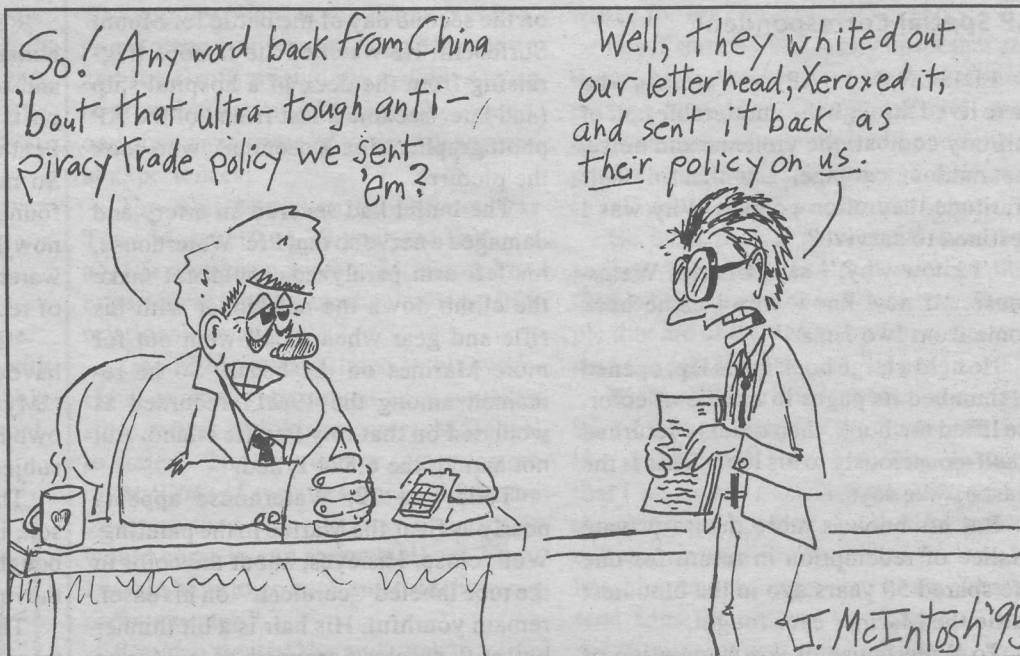 So. Any word back from China
'bout that ultra-tough anti-
piracy trade policy we sent
'em?
Well, they whited out
our letterhead, Xeroxed it,
and sent it back as
their policy on us.
J. McIntosh '95